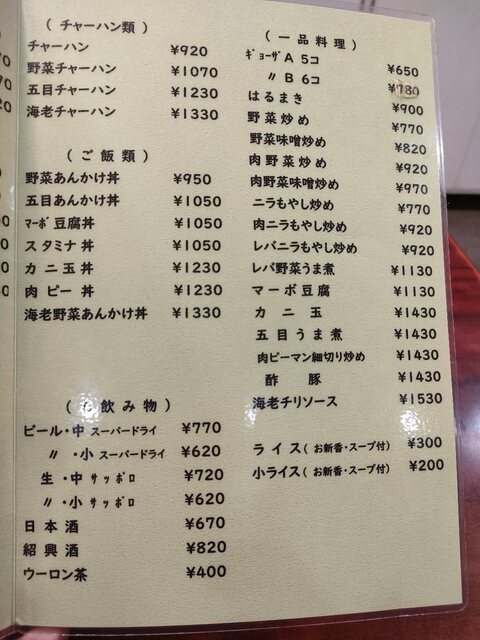 ( チャーハン類 )
チャーハン ¥920
野菜チャーハン ¥1070
五目チャーハン ¥1230
海老チャーハン ¥1330
( ご飯類 )
野菜あんかけ丼 ¥950
五目あんかけ丼 ¥1050
マーボ豆腐丼 ¥1050
スタミナ丼 ¥1050
カニ玉丼 ¥1230
肉ピー丼 ¥1230
海老野菜あんかけ丼 ¥1330
( お飲み物 )
ビール・中 スーパードライ ¥770
〃 ・小 スーパードライ ¥620
生・中 サッポロ ¥720
〃 ・小 サッポロ ¥620
日本酒 ¥670
紹興酒 ¥820
ウーロン茶 ¥400
( 一品料理 )
ギョーザA 5コ ¥650
〃 B 6コ ¥780
はるまき ¥900
野菜炒め ¥770
野菜味噌炒め ¥820
肉野菜炒め ¥920
肉野菜味噌炒め ¥970
ニラもやし炒め ¥770
肉ニラもやし炒め ¥920
レバニラもやし炒め ¥920
レバ野菜うま煮 ¥1130
マーボ豆腐 ¥1130
カニ玉 ¥1430
五目うま煮 ¥1430
肉ピーマン細切り炒め ¥1430
酢豚 ¥1430
海老チリソース ¥1530
ライス( お新香・スープ付) ¥300
小ライス( お新香・スープ付) ¥200